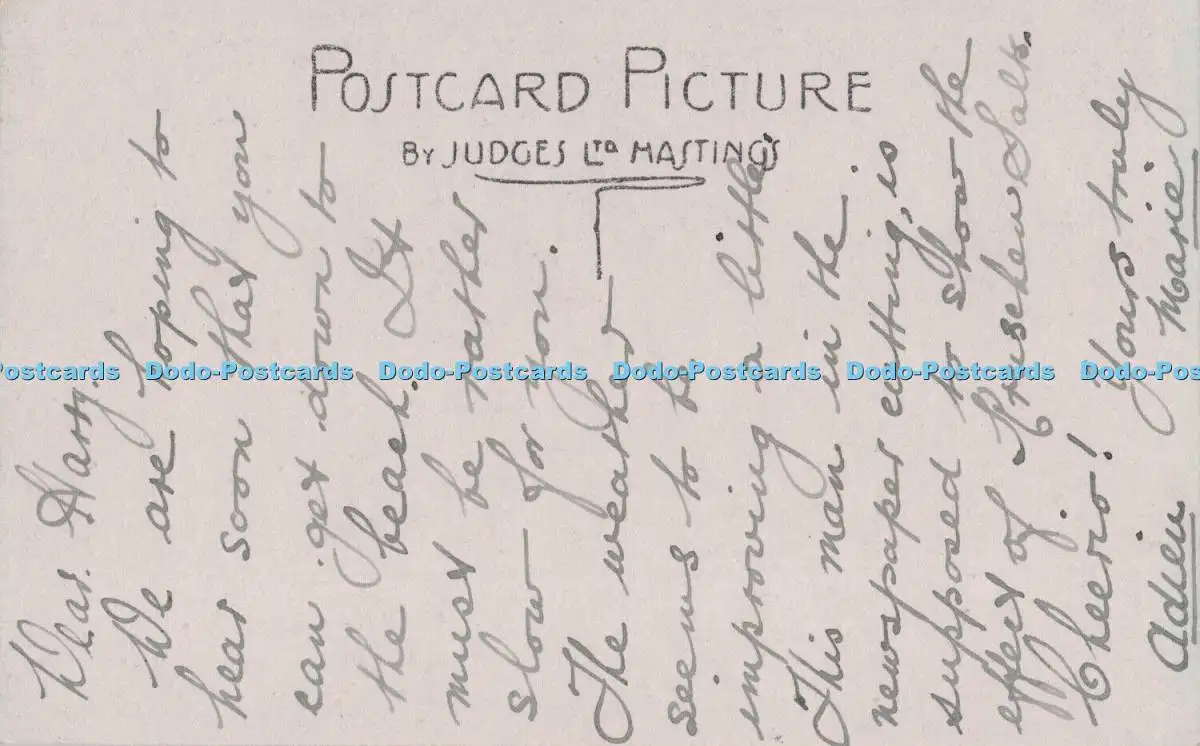 POSTCARD PICTURE
BY JUDGES LTD HASTINGS
Dear Harry.
We are hoping to
hear soon that you
can get down to
the beach. It
must be rather
slow for you.
The weather
seems to be
improving a little.
This man in the
newspaper cutting, is
supposed to show the
effect of Kruschen Salts.
Cheerio! Yours truly
Adieu Marie
Postcards Dodo-Postcards Dodo-Postcards Dodo-Postcards Dodo-Postcards Dodo-Pos